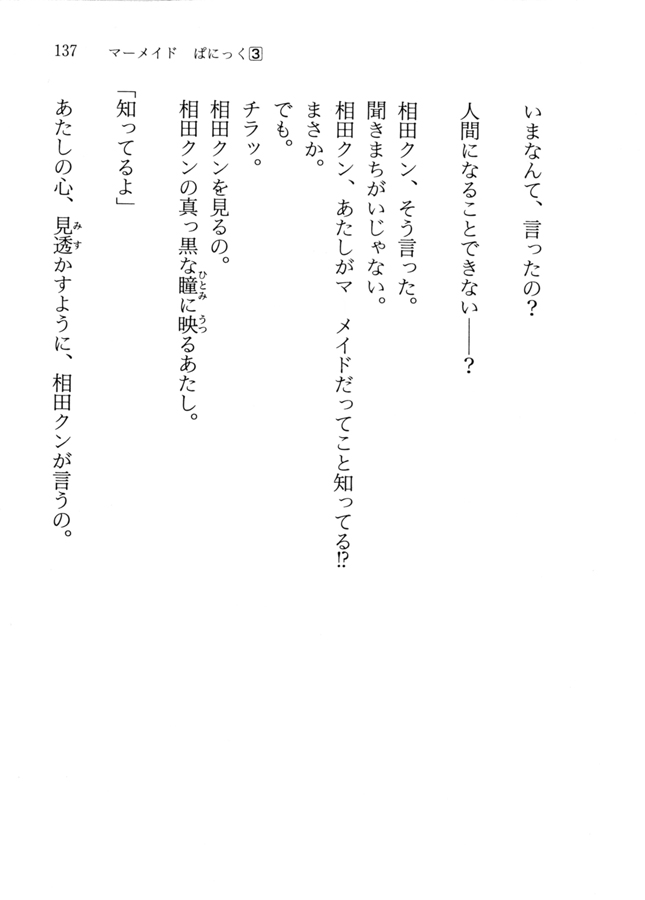 137 マーメイド ぱにっく3
いまなんて、言ったの?
人間になることできない――?
相田クン、そう言った。
聞きまちがいじゃない。
相田クン、あたしがマ メイドだってこと知ってる!?
まさか。
でも。
チラッ。
相田クンを見るの。
相田クンの真っ黒な瞳に映るあたし。
「知ってるよ」
あたしの心、見透かすように、相田クンが言うの。